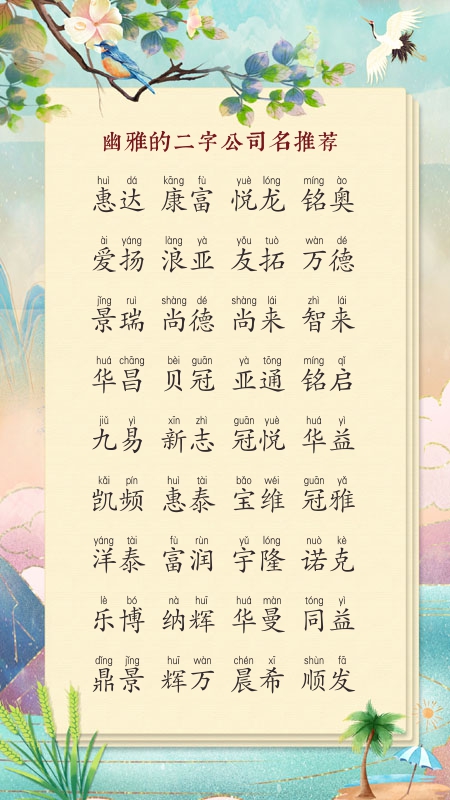 幽雅的二字公司名推荐
huì dá kāng fù yuè lóng míng ào
惠达 康富 悦龙 铭奥
ài yáng làng yà yǒu tuò wàn dé
爱扬 浪亚 友拓 万德
jǐng ruì shàng dé shàng lái zhì lái
景瑞 尚德 尚来 智来
huá chāng bèi guān yà tōng míng qǐ
华昌 贝冠 亚通 铭启
jiǔ yì xīn zhì guān yuè huá yì
九易 新志 冠悦 华益
kǎi pín huì tài bǎo wéi guān yǎ
凯频 惠泰 宝维 冠雅
yáng tài fù rùn yǔ lóng nuò kè
洋泰 富润 宇隆 诺克
lè bó nà huī huá màn tóng yì
乐博 纳辉 华曼 同益
dǐng jǐng huī wàn chén xī shùn fā
鼎景 辉万 晨希 顺发